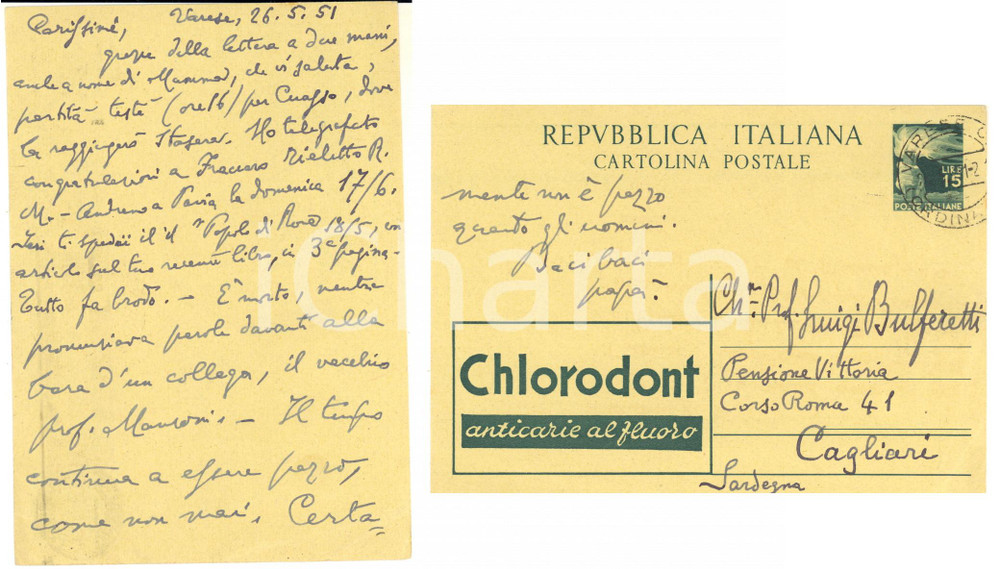 Carissimi, Varese, 26.5.51
grazie della lettera a due mani,
anche a nome di Mamma, che vi saluta,
partita testé (ore 16) per Cuasso, dove
la raggiungerò stasera. Ho telegrafato
congratulazioni a Fraccaro rieletto R.
M. - Andremo a Pavia la domenica 17/6.
Ieri ti spedii il il "Popolo di Roma" 18/5, con
articolo sul tuo recente libro, in 3ª pagina -
Tutto fa brodo. - È morto, mentre
pronunziava parole davanti alla
bara d'un collega, il vecchio
prof. Manzoni. - Il tempo
continua a essere pazzo,
come non mai. Certa=
REPVBBLICA ITALIANA
CARTOLINA POSTALE
LIRE
15
POSTE ITALIANE
mente non è pazzo
quanto gli uomini.
Baci baci
papà.
Ch. Prof. Luigi Bulferetti
Pensione Vittoria
Corso Roma 41
Cagliari
Sardegna
Chlorodont
anticarie al fluoro
iCharta